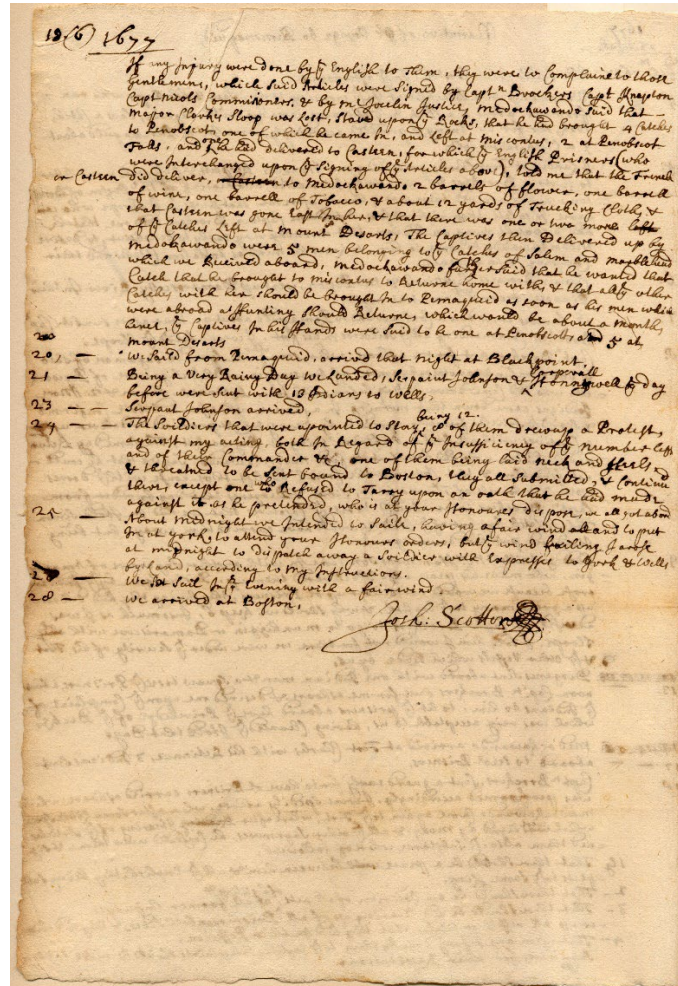 19 (6) 1677
If any Injury were done by ye English to Them, they were to Complaine to those
Gentlemen, which Said Articles were Signed by Captn Brockers Capt Knapton
Capt Nicols Commisoners, & by me Jocelin Justice, Madockawando Said that
Major Clarkes Sloop was Lost, Staved upon ye Rocks, that he had brought 4 Catches
to Penobscot, one of which he came In, and Left at Misconlus, 2 at Penobscot
Falls, and he had delivered to Casteen, for which ye English Prisners (who
were Interchanged upon ye Signing of ye Articles above), told me that the French
or Casteen did deliver, to Madockawando 2 barrels of flower, one barrell
of wine, one barrell of Tobacco, & about 12 yards of Trucking Cloth, &
that Casteen was gone East In her, & that there was one or two more left
of ye Catches Left at Mount Desarts, The Captives then Delivered up by
Medokawando were 5 men belonging to ye Catches of Salem and Marblehead
which we Received aboard, Medockawando further Said that he wanted that
Catch that he brought to Misconlus to Returne home with, & that all ye other
Catches with her should be brought In to Pemaquid as soon as his men which
were abroad a Hunting should Returne, which would be about a Months
time, ye Captives In his Hands were Said to be one at Penobscot, and 5 at
mount Desarts
20, — We Saild from Pemaquid, arrived that night at Blackpoint,
21 — Being a Very Rainy Day we Landed, Serjaint Johnson & Corporall well ye day
before were Sent with 13 Indians to Wells,
23 — Serjant Johnson arrived,
24 — The Soldiers that were apointed to Stay, being 12. 8 of them drew up a Protest,
against my acting, both In Regard of ye Insufficiency of ye number left
and of their Commander &c, one of them being laid neck and Heels,
& threatned to be Sent bound to Boston, they all Submitted, & Continued
there, except one who Refused to Tarry upon an oath that he had made
against it as he pretended, who is at your Honoures dispose, we all got abord
25 — About Midnight we Intended to Saile, having a fair wind and to put
In at York, to attend your Honoures orders, but ye wind failing I arose
at midnight to dispatch away a Soildier with Expresses to York & Wells
by Land, according to My Instructions.
We Set Sail In ye Evening with a fair wind.
28 — we arrived at Boston,
Josh: Scottow